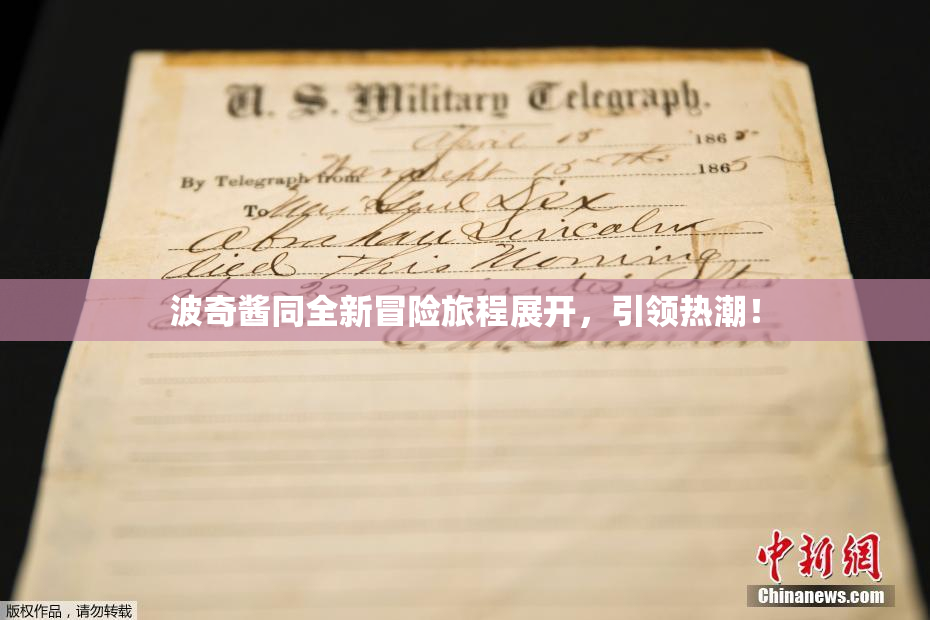 U. S. Military Telegraph.
April 15 1865
By Telegraph from War Dept 15th 1865
To Maj Genl Dix
Abraham Lincoln
died This Morning
at 22 minutes after
波奇酱同全新冒险旅程展开，引领热潮！
E. M. Stanton
中新网
Chinanews.com
版权作品，请勿转载